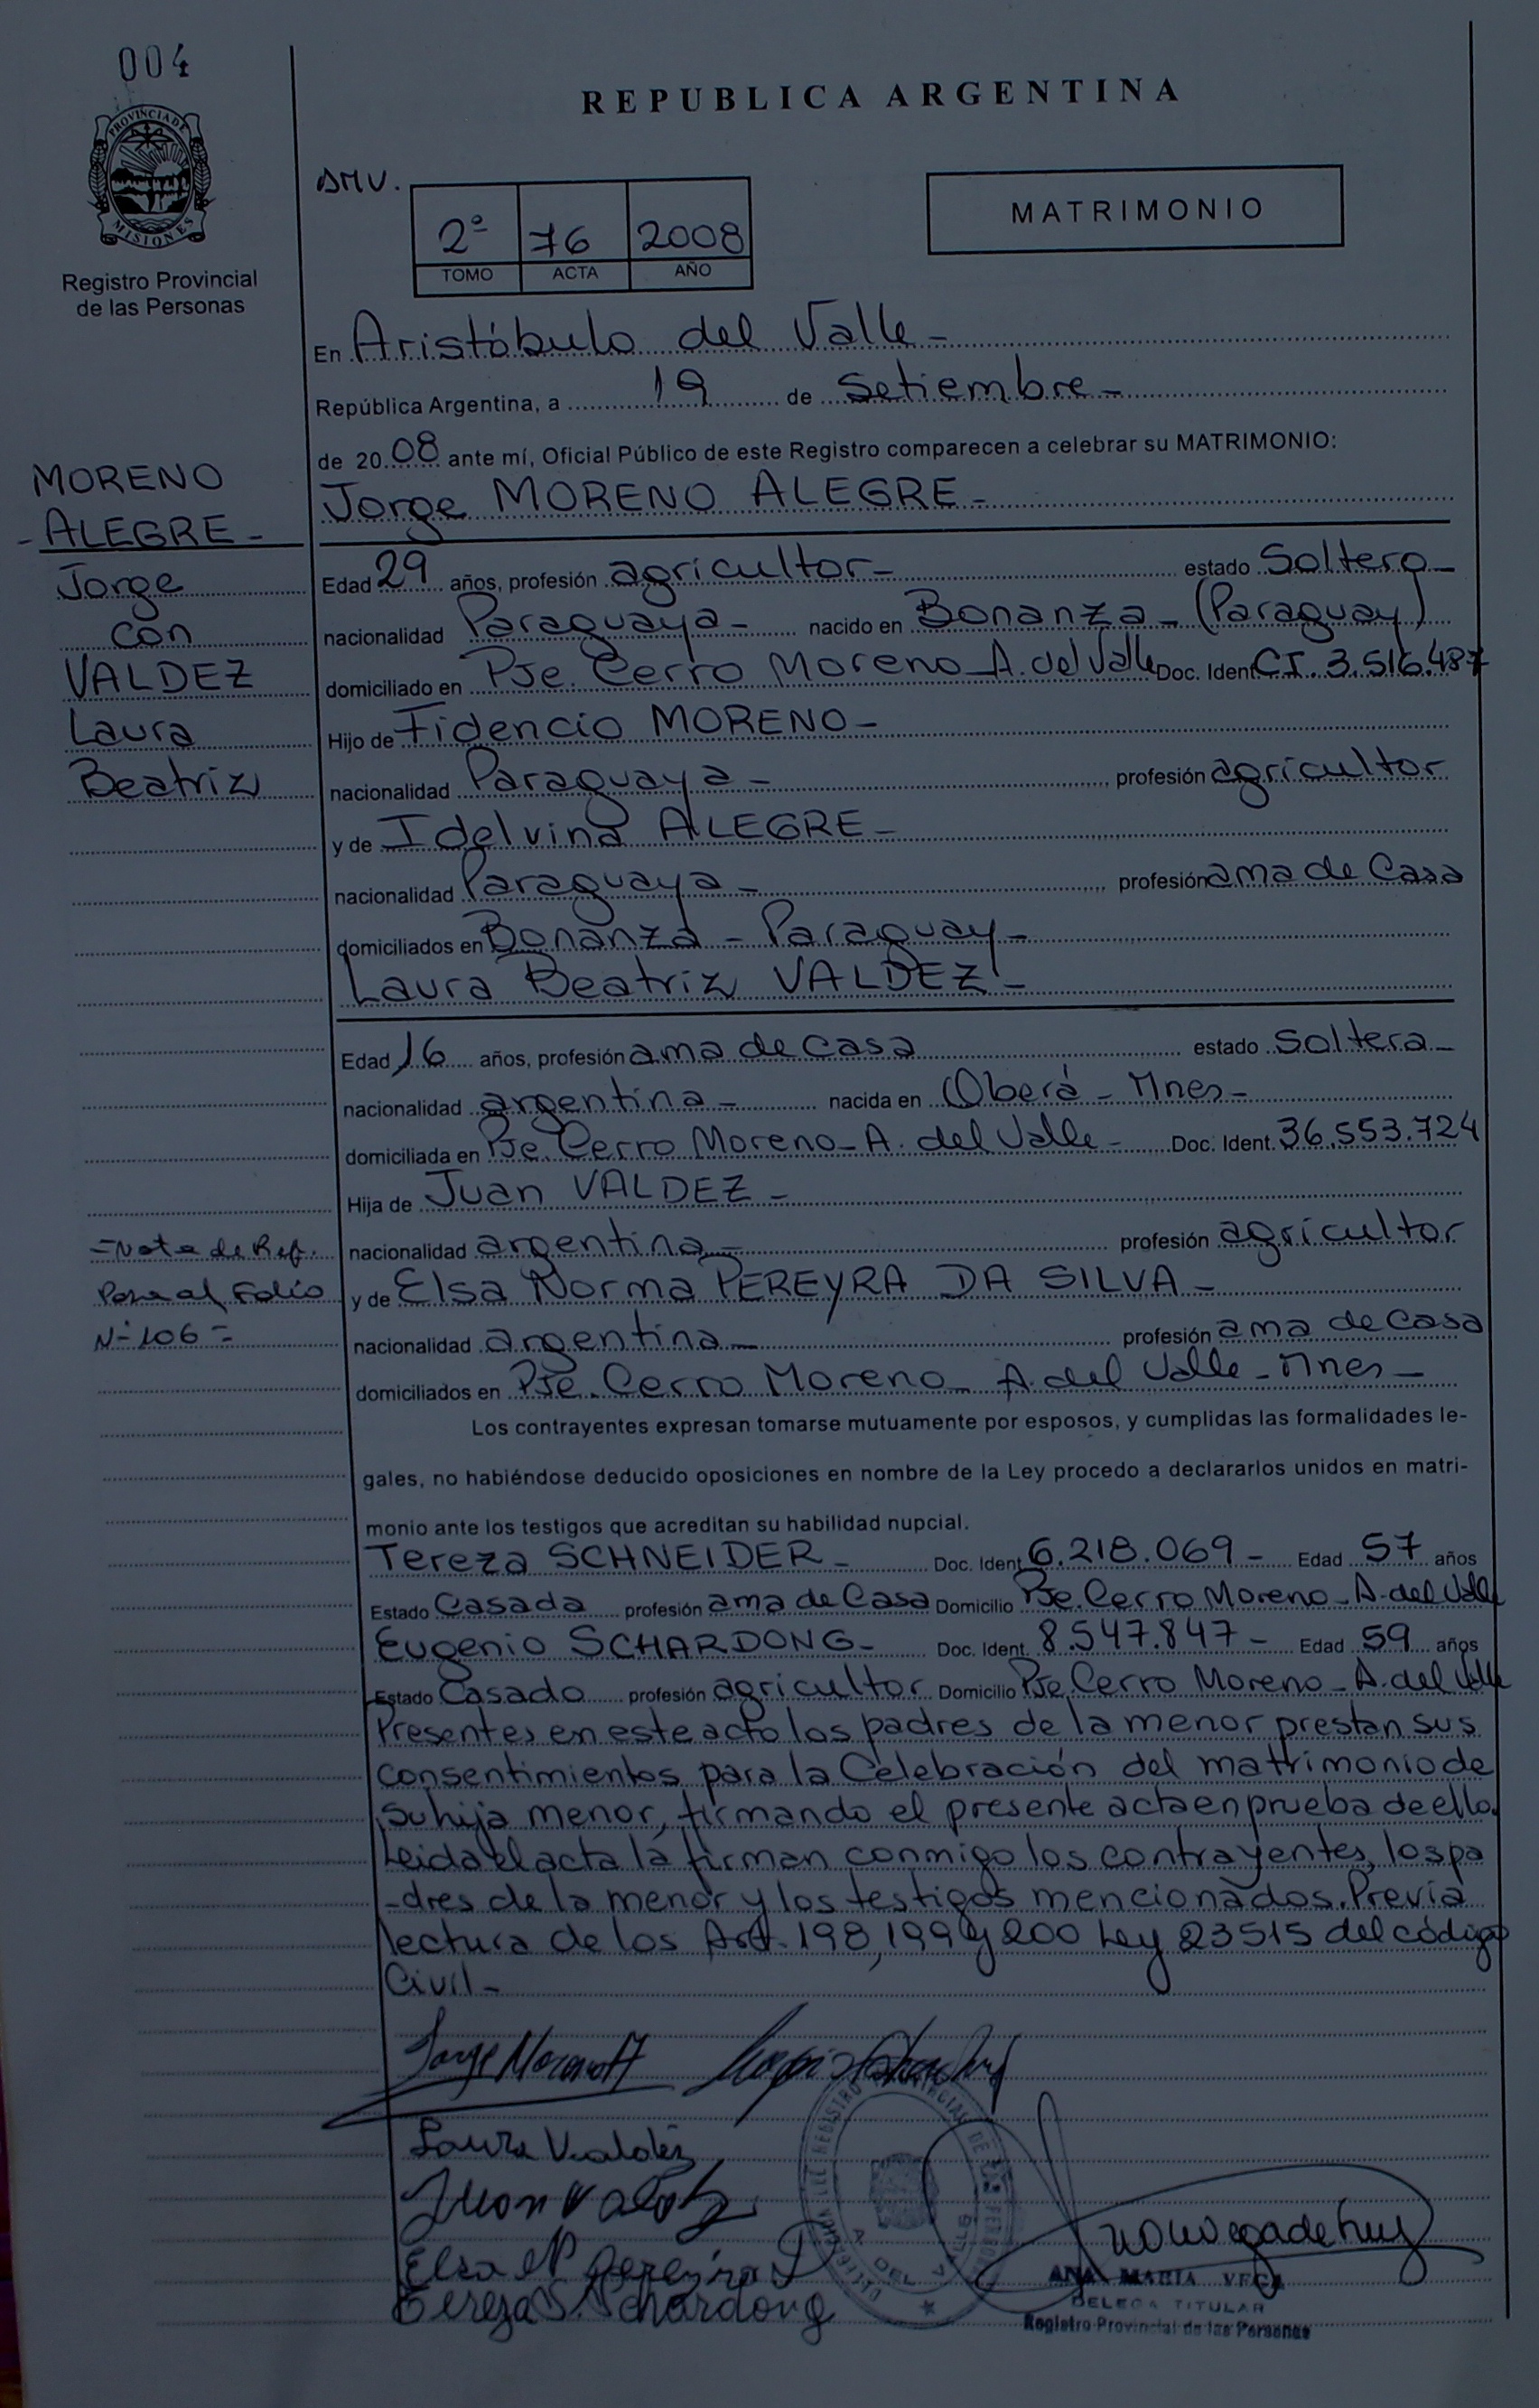 004
PROVINCIA DE
MISIONES
Registro Provincial
de las Personas
REPUBLICA ARGENTINA
AMV.
2º 76 2008
TOMO ACTA AÑO
MATRIMONIO
En Aristóbulo del Valle -
República Argentina, a 19 de Setiembre -
de 2008 ante mí, Oficial Público de este Registro comparecen a celebrar su MATRIMONIO:
MORENO
- ALEGRE -
Jorge
con
VALDEZ
Laura
Beatriz
Jorge MORENO ALEGRE -
Edad 29 años, profesión agricultor - estado Soltero -
nacionalidad Paraguaya - nacido en Bonanza - (Paraguay)
domiciliado en Pje. Cerro Moreno - A. del Valle Doc. Ident. CI. 3.516.487
Hijo de Fidencio MORENO -
nacionalidad Paraguaya - profesión agricultor
y de Idelvina ALEGRE -
nacionalidad Paraguaya - profesión ama de Casa
domiciliados en Bonanza - Paraguay -
Laura Beatriz VALDEZ -
Edad 16 años, profesión ama de casa estado Soltera -
nacionalidad argentina - nacida en Oberá - Mnes -
domiciliada en Pje. Cerro Moreno - A. del Valle - Doc. Ident. 36.553.724
Hija de Juan VALDEZ -
nacionalidad argentina - profesión agricultor
y de Elsa Norma PEREYRA DA SILVA -
nacionalidad argentina - profesión ama de casa
domiciliados en Pje. Cerro Moreno - A. del Valle - Mnes -
= Nota de Ref.
Pasa al Folio
Nº 106 =
Los contrayentes expresan tomarse mutuamente por esposos, y cumplidas las formalidades le-
gales, no habiéndose deducido oposiciones en nombre de la Ley procedo a declararlos unidos en matri-
monio ante los testigos que acreditan su habilidad nupcial.
Tereza SCHNEIDER - Doc. Ident. 6.218.069 - Edad 57 años
Estado Casada profesión ama de Casa Domicilio Pje. Cerro Moreno - A. del Valle
Eugenio SCHARDONG - Doc. Ident. 8.547.847 - Edad 59 años
Estado Casado profesión agricultor Domicilio Pje. Cerro Moreno - A. del Valle
Presentes en este acto los padres de la menor prestan sus
consentimientos para la Celebración del matrimonio de
su hija menor, firmando el presente acta en prueba de ello.
Leida el acta la firman conmigo los contrayentes, los pa
-dres de la menor y los testigos mencionados. Previa
lectura de los Art. 198, 199 y 200 Ley 23515 del código
Civil -
Jorge Moreno A
Laura Valdéz
Juan Valdez
Elsa N Pereyra D
Tereza S. Schardong
A. DEL VALLE
ANA MARIA VEGA
DELEGA TITULAR
Registro Provincial de las Personas